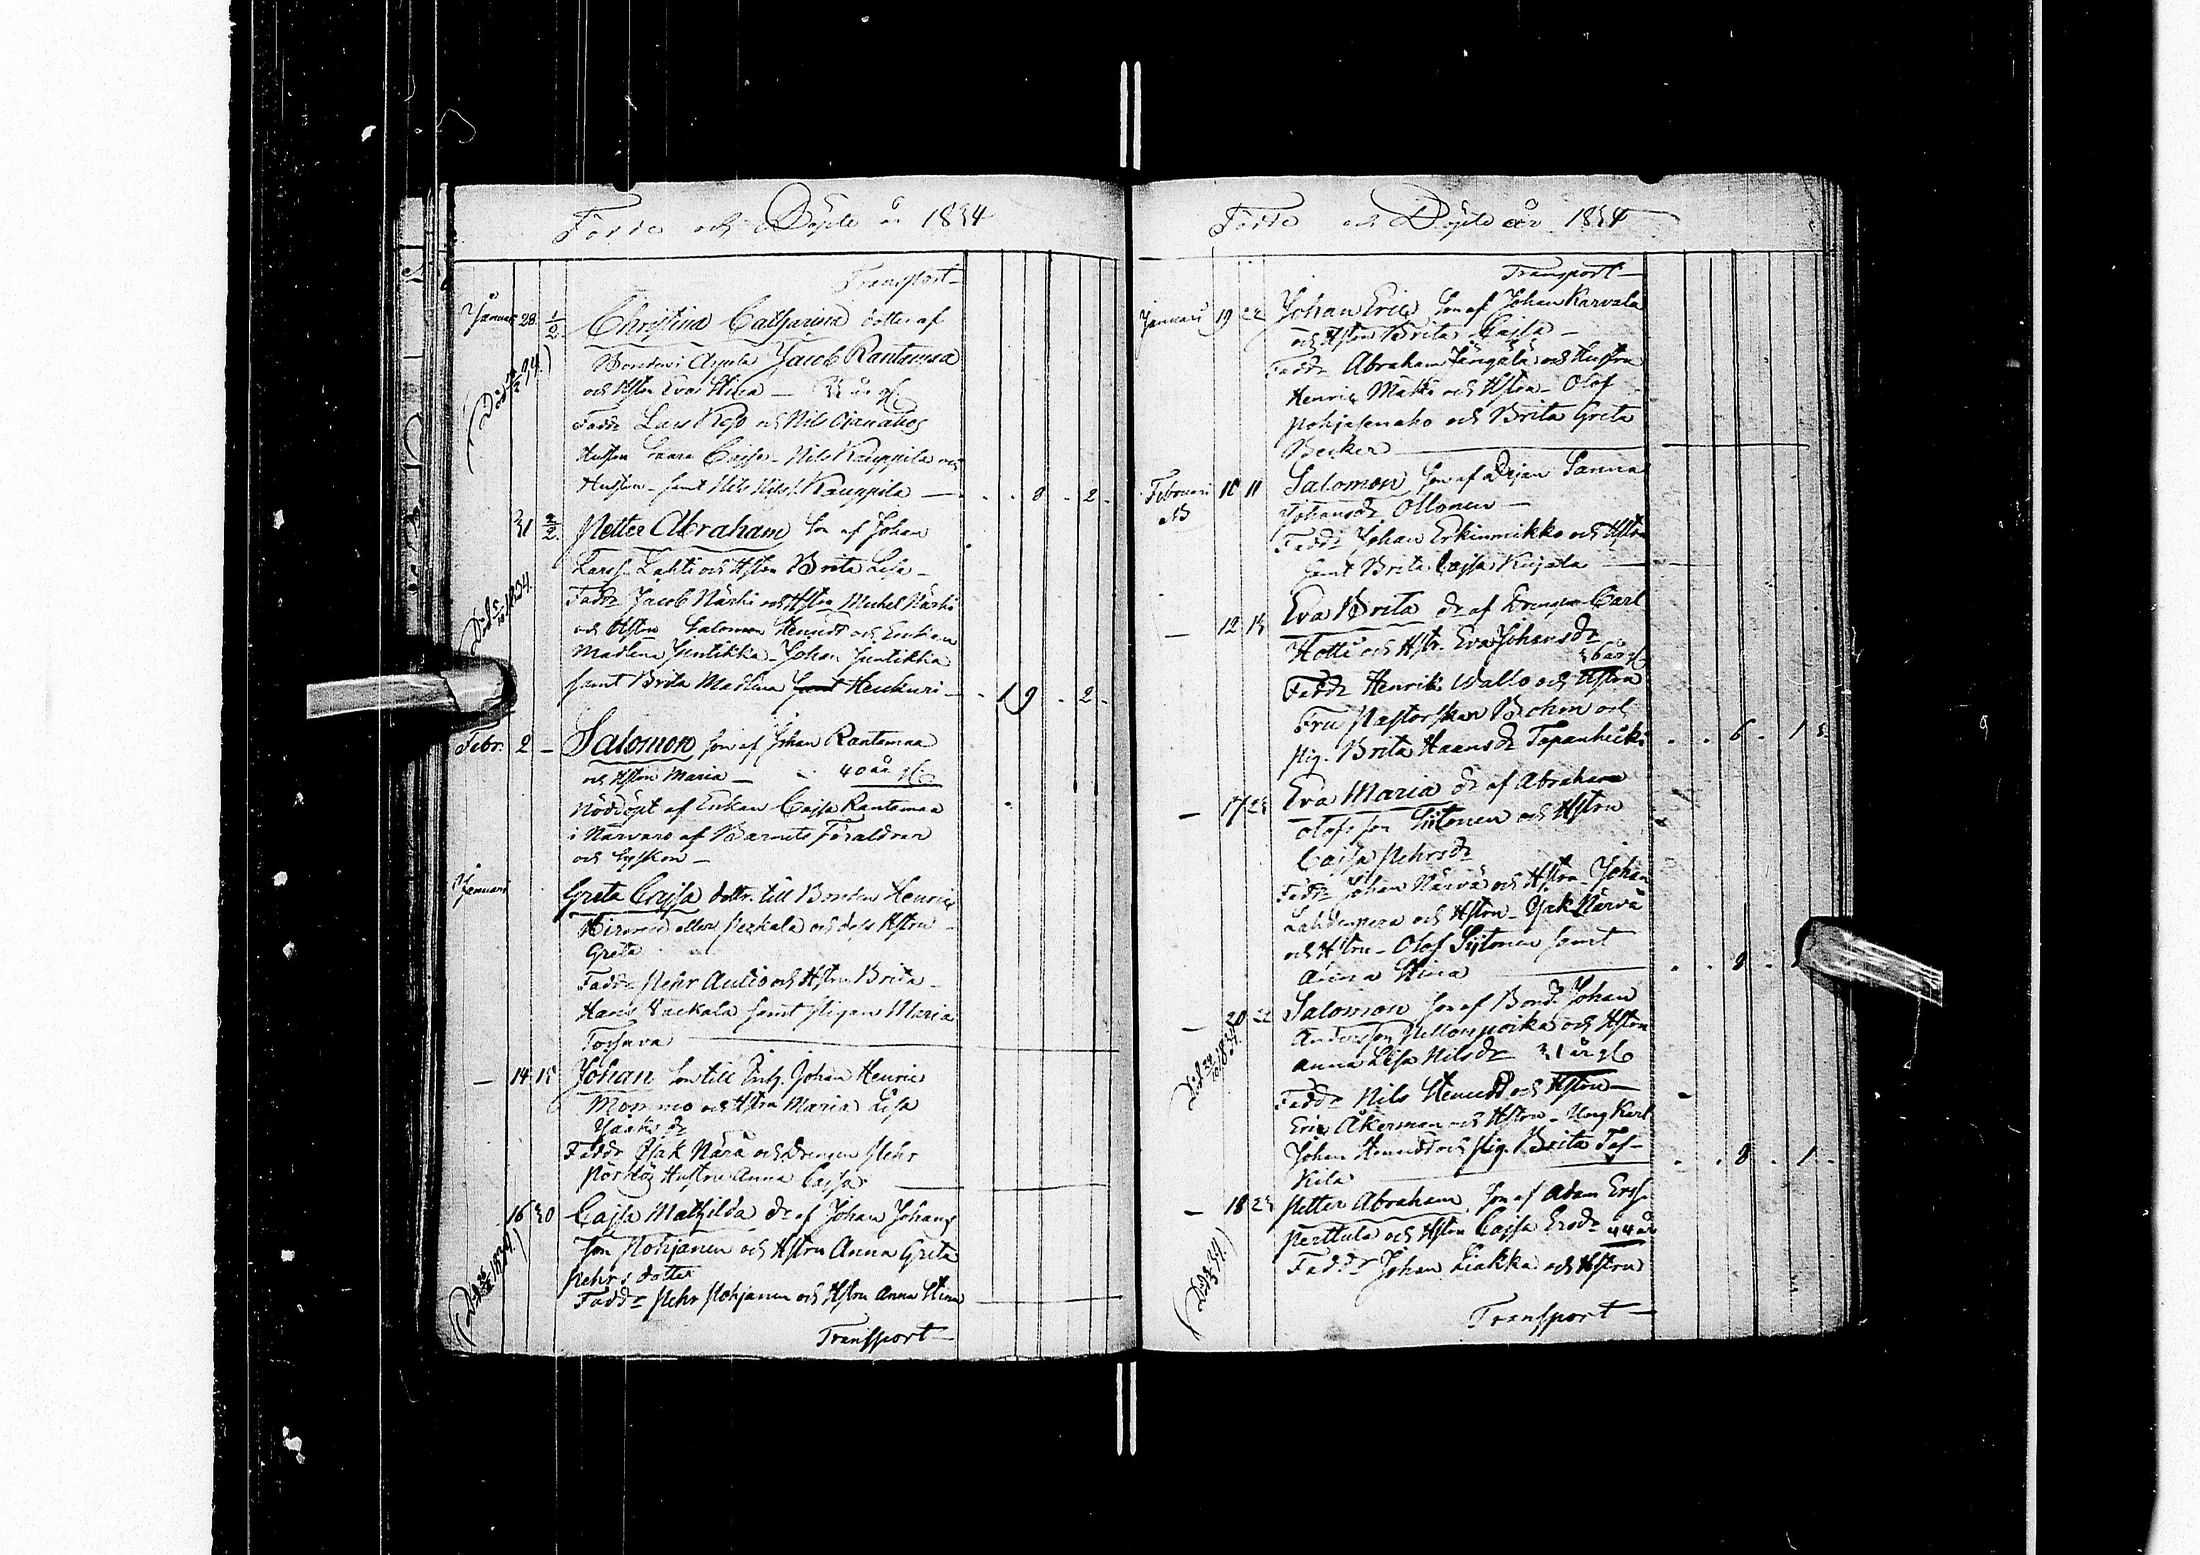 Födde och Döpte år 1834
Transport
Januar 28 1/2 Christina Catharina dotter af
Bonden i Jacob Rantamaa
och Hstru Eva Stina 33 år gl
Faddr Lars och Nils
Hustru Laara Cajsa Nils Kauppila och
Hustru samt Nils Nilss. Kauppila 8 2
31 2/2 Petter Abraham Son af Johan
Larss. Lahti och Hstru Brita Lisa
Faddr Jacob Närhi och Hstru Michel Närhi
och Hstru Salomon och Enkan
Madlena Juntikka Johan Juntikka
samt Brita Madlena samt 19 2
Död 1834
Febr. 2 Salomon son af Johan Rantamaa
och Hstru Maria 40 år gl
Nöddöpt af Enkan Cajsa Rantamaa
i Närvaro af Barnets Föräldrar
och Syskon
Januari Greta Cajsa dotter till Bonden Henric
eller Perkala och dess Hstru
Greta
Faddr Pehr Autio och Hstru Brita
Hans samt Pigan Maria
Torsava
14 15 Johan son till Johan Henric
Mommo och Hstru Maria Lisa
Jaaks dr
Faddr Isak Närä och Drengen Pehr
Hustru Anna Cajsa
16 30 Cajsa Mathilda dr af Johan Johans
son Pohjanen och Hstru Anna Greta
Pehrs dotter
Faddr Pehr Pohjanen och Hstru Anna Stina
Transport
Födde och Döpte år 1834
Transport
Januari 19 22 Johan Eric Son af Johan Karvala
och Hstru Brita Cajsa
Faddr Abraham och Hustru
Henric Mäki och Hstru Olof
Pohjasenaho och Brita Greta
Becker
Februari 10 11 Salomon son af Pijan Sanna
Johansdr Ollonen
Faddr Johan Erkinmikko och Hstru
samt Brita Cajsa Kujala
12 15 Eva Brita dr af Drengen Carl
Hotti och Hstr. Eva Johansdr
36 år gl
Faddr Henrik Wallo och Hstru
Fru Pastorskan Bohm och
Pig. Brita Haansdr 6 1
17 23 Eva Maria dr af Abraham
Olofsson Siitonen och Hstru
Cajsa Pehrsdr
Faddr Johan Närvä och Hstru Johan
Lahdenpera och Hstru Isak Närvä
och Hstru Olof Siitonen samt
Anna Stina 8
20 22 Salomon son af Bond. Johan
Andersson och Hstru
Anna Lisa Nilsdr 31 år gl
Faddr Nils och Hstru
Eric Åkerman och Hstru Ung Karl
Johan och Pig. Brita Tas-
kila 8 1
18 23 Petter Abraham son af Adam Erss.
Perttula och Hstru Cajsa Ersdr 44 år
Faddr Johan Liakka och Hstru
Transport